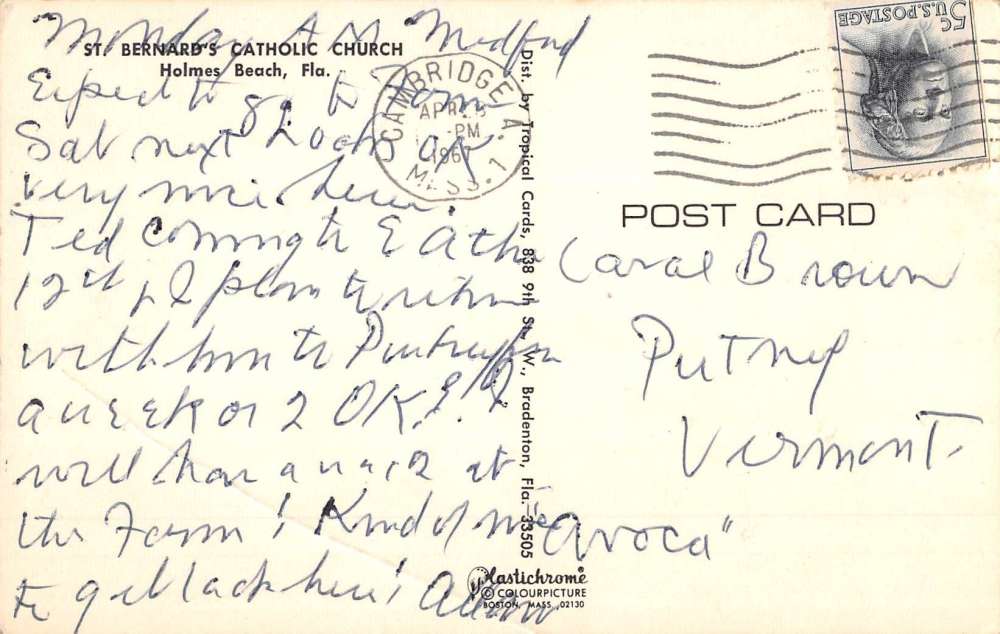 Monday A.M. Medford
ST. BERNARD'S CATHOLIC CHURCH
Holmes Beach, Fla.
Expect to go to Farm
Sat next Looks
very nice here.
Ted coming to E
12th & I plan to return
with him to Putney for
a week or 2 OK. I
will have a at
the Farm! Kind of nice
to get back here!
Dist. by Tropical Cards, 838 9th St. W., Bradenton, Fla. 33505
CAMBRIDGE
APR
PM
196
MASS. 1
5c
U.S. POSTAGE
POST CARD
Carol Brown
Putney
Vermont.
"Avoca"
Plastichrome
© COLOURPICTURE
BOSTON, MASS. 02130